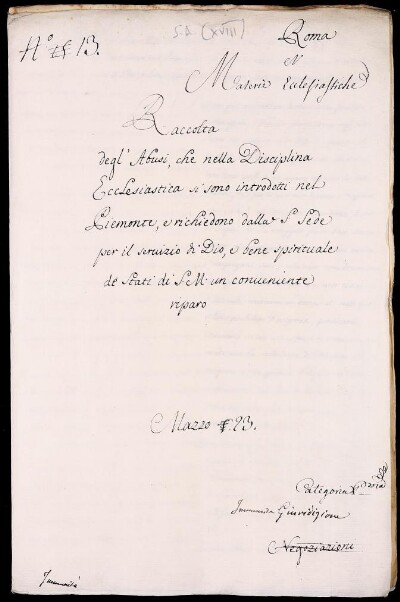 S.D. (XVIII)
Roma
N° 13.
Materie Ecclesiastiche
Raccolta
degl' Abusi, che nella Disciplina
Ecclesiastica si sono introdotti nel
Piemonte, e richiedono dalla S. Sede
per il servizio di Dio, e bene spirituale
de Stati di S. M. un conveniente
riparo
Mazzo 23.
Categoria
Immunità Giurisdizione
Negoziazioni
Immunità